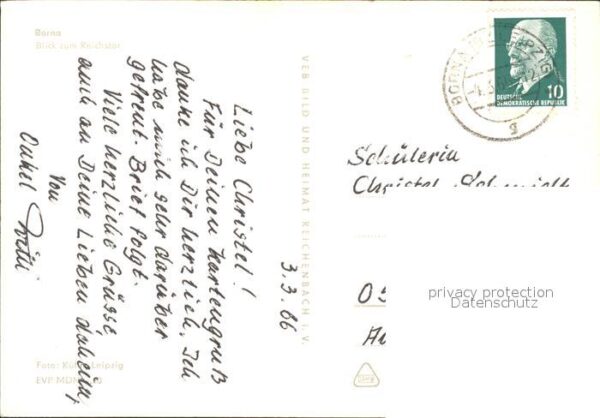 Borna
Blick zum Reichstor
Liebe Christel!
Für Deinen Kartengruß
danke ich Dir herzlich. Ich
habe mich sehr darüber
gefreut. Brief folgt.
Viele herzliche Grüsse
auch an Deine Lieben daheim,
von
Onkel Willi
3.3.66
Foto: Leipzig
EVP MDN
VEB BILD UND HEIMAT REICHENBACH I. V.
BORNA LEIPZIG
g
10
DEUTSCHE
DEMOKRATISCHE REPUBLIK
Schülerin
Christel
05
privacy protection
Datenschutz